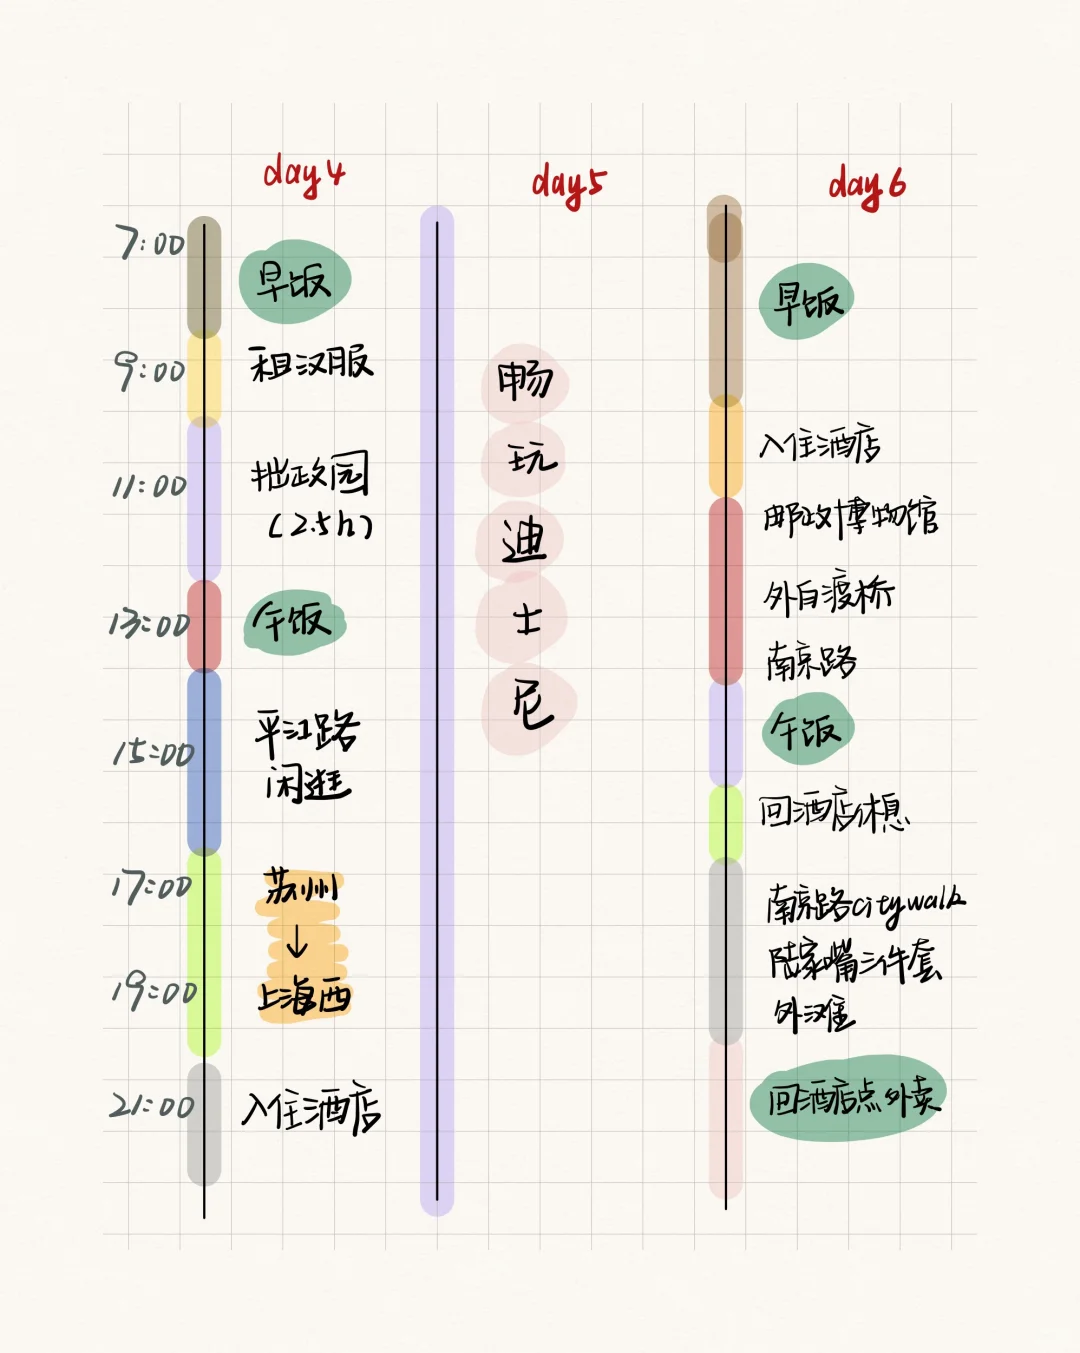 day4
7:00
早饭
9:00
租汉服
11:00
拙政园
(2.5h)
13:00
午饭
15:00
平江路
闲逛
17:00
苏州
↓
19:00
上海西
21:00
入住酒店
day5
畅
玩
迪
士
尼
day6
早饭
入住酒店
邮政博物馆
外白渡桥
南京路
午饭
回酒店休息
南京路citywalk
陆家嘴三件套
外滩
回酒店点外卖